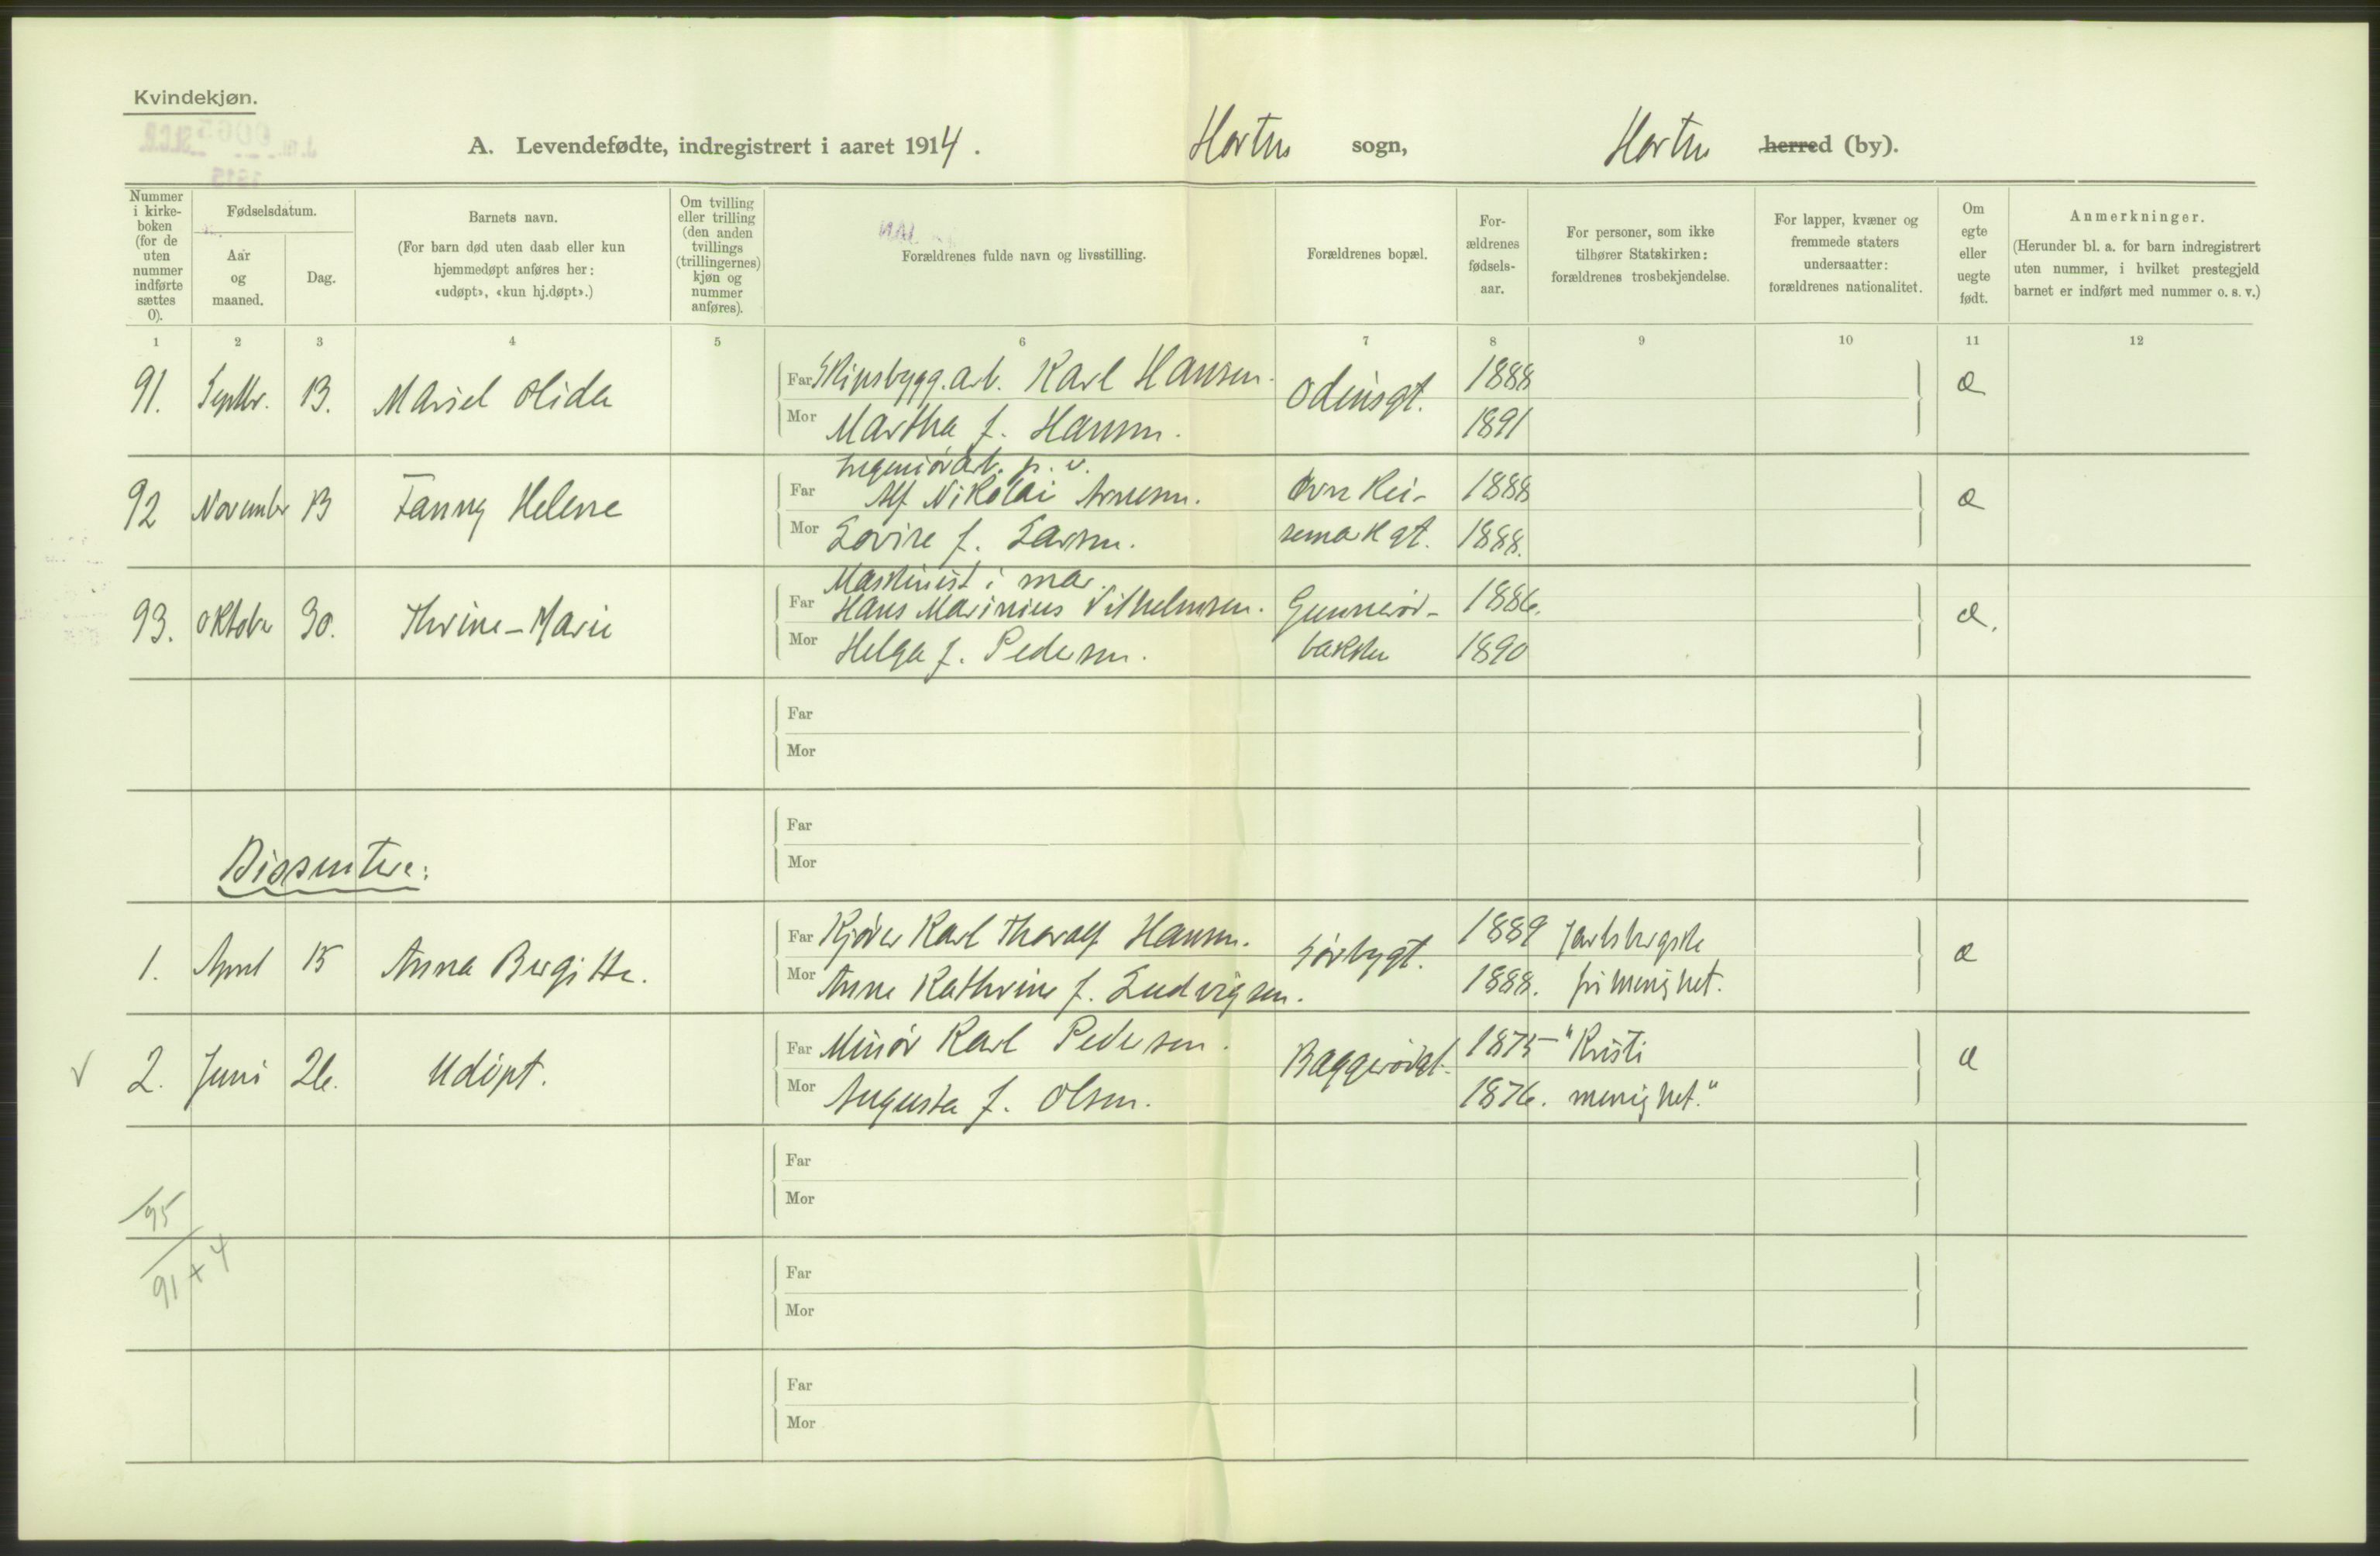 Kvindekjøn.
A. Levendefødte, indregistrert i aaret 1914. Horten sogn, Horten herred (by).
Nummer i kirke-boken (for de uten nummer indførte sættes 0).
Fødselsdatum.
Aar og maaned.
Dag.
Barnets navn.
(For barn død uten daab eller kun hjemmedøpt anføres her: «udøpt», «kun hj.døpt».)
Om tvilling eller trilling (den anden tvillings (trillingernes) kjøn og nummer anføres).
Forældrenes fulde navn og livsstilling.
Forældrenes bopæl.
For-ældrenes fødsels-aar.
For personer, som ikke tilhører Statskirken: forældrenes trosbekjendelse.
For lapper, kvæner og fremmede staters undersaatter: forældrenes nationalitet.
Om egte eller uegte født.
Anmerkninger.
(Herunder bl. a. for barn indregistrert uten nummer, i hvilket prestegjeld barnet er indført med nummer o. s. v.)
1 2 3 4 5 6 7 8 9 10 11 12
91. Septbr. 13. Marsel Olida Far Skipsbygg.arb. Karl Hansen. Odinsgt. 1888 æ
Mor Martha f. Hansen. 1891
Ingeniørarb. p. v.
92 November 13 Fanny Helene Far Alf Nikolai Arnesen. Øvre Kei- 1888 æ
Mor Lovise f. Larsen. semarkgt. 1888.
Maskinist i mar.
93. Oktober 30. Thrine-Marie Far Hans Marinius Vilhelmsen. Gunnerød- 1886. æ.
Mor Helga f. Pedersen. bakken 1890
Far
Mor
Far
Dissentere:
Mor
1. April 15 Anna Birgitte. Far Kjører Karl Thoralf Hansen. Sørbygt. 1889 Jarlsbergske æ
Mor Anne Kathrine f. Ludvigsen. 1888. frimenighet.
2. Juni 26. Udøpt. Far Minør Karl Pedersen. Baggerødgt. 1875 "Kristi æ
Mor Augusta f. Olsen. 1876. menighet."
Far
Mor
95
91 + 4
Far
Mor
Far
Mor